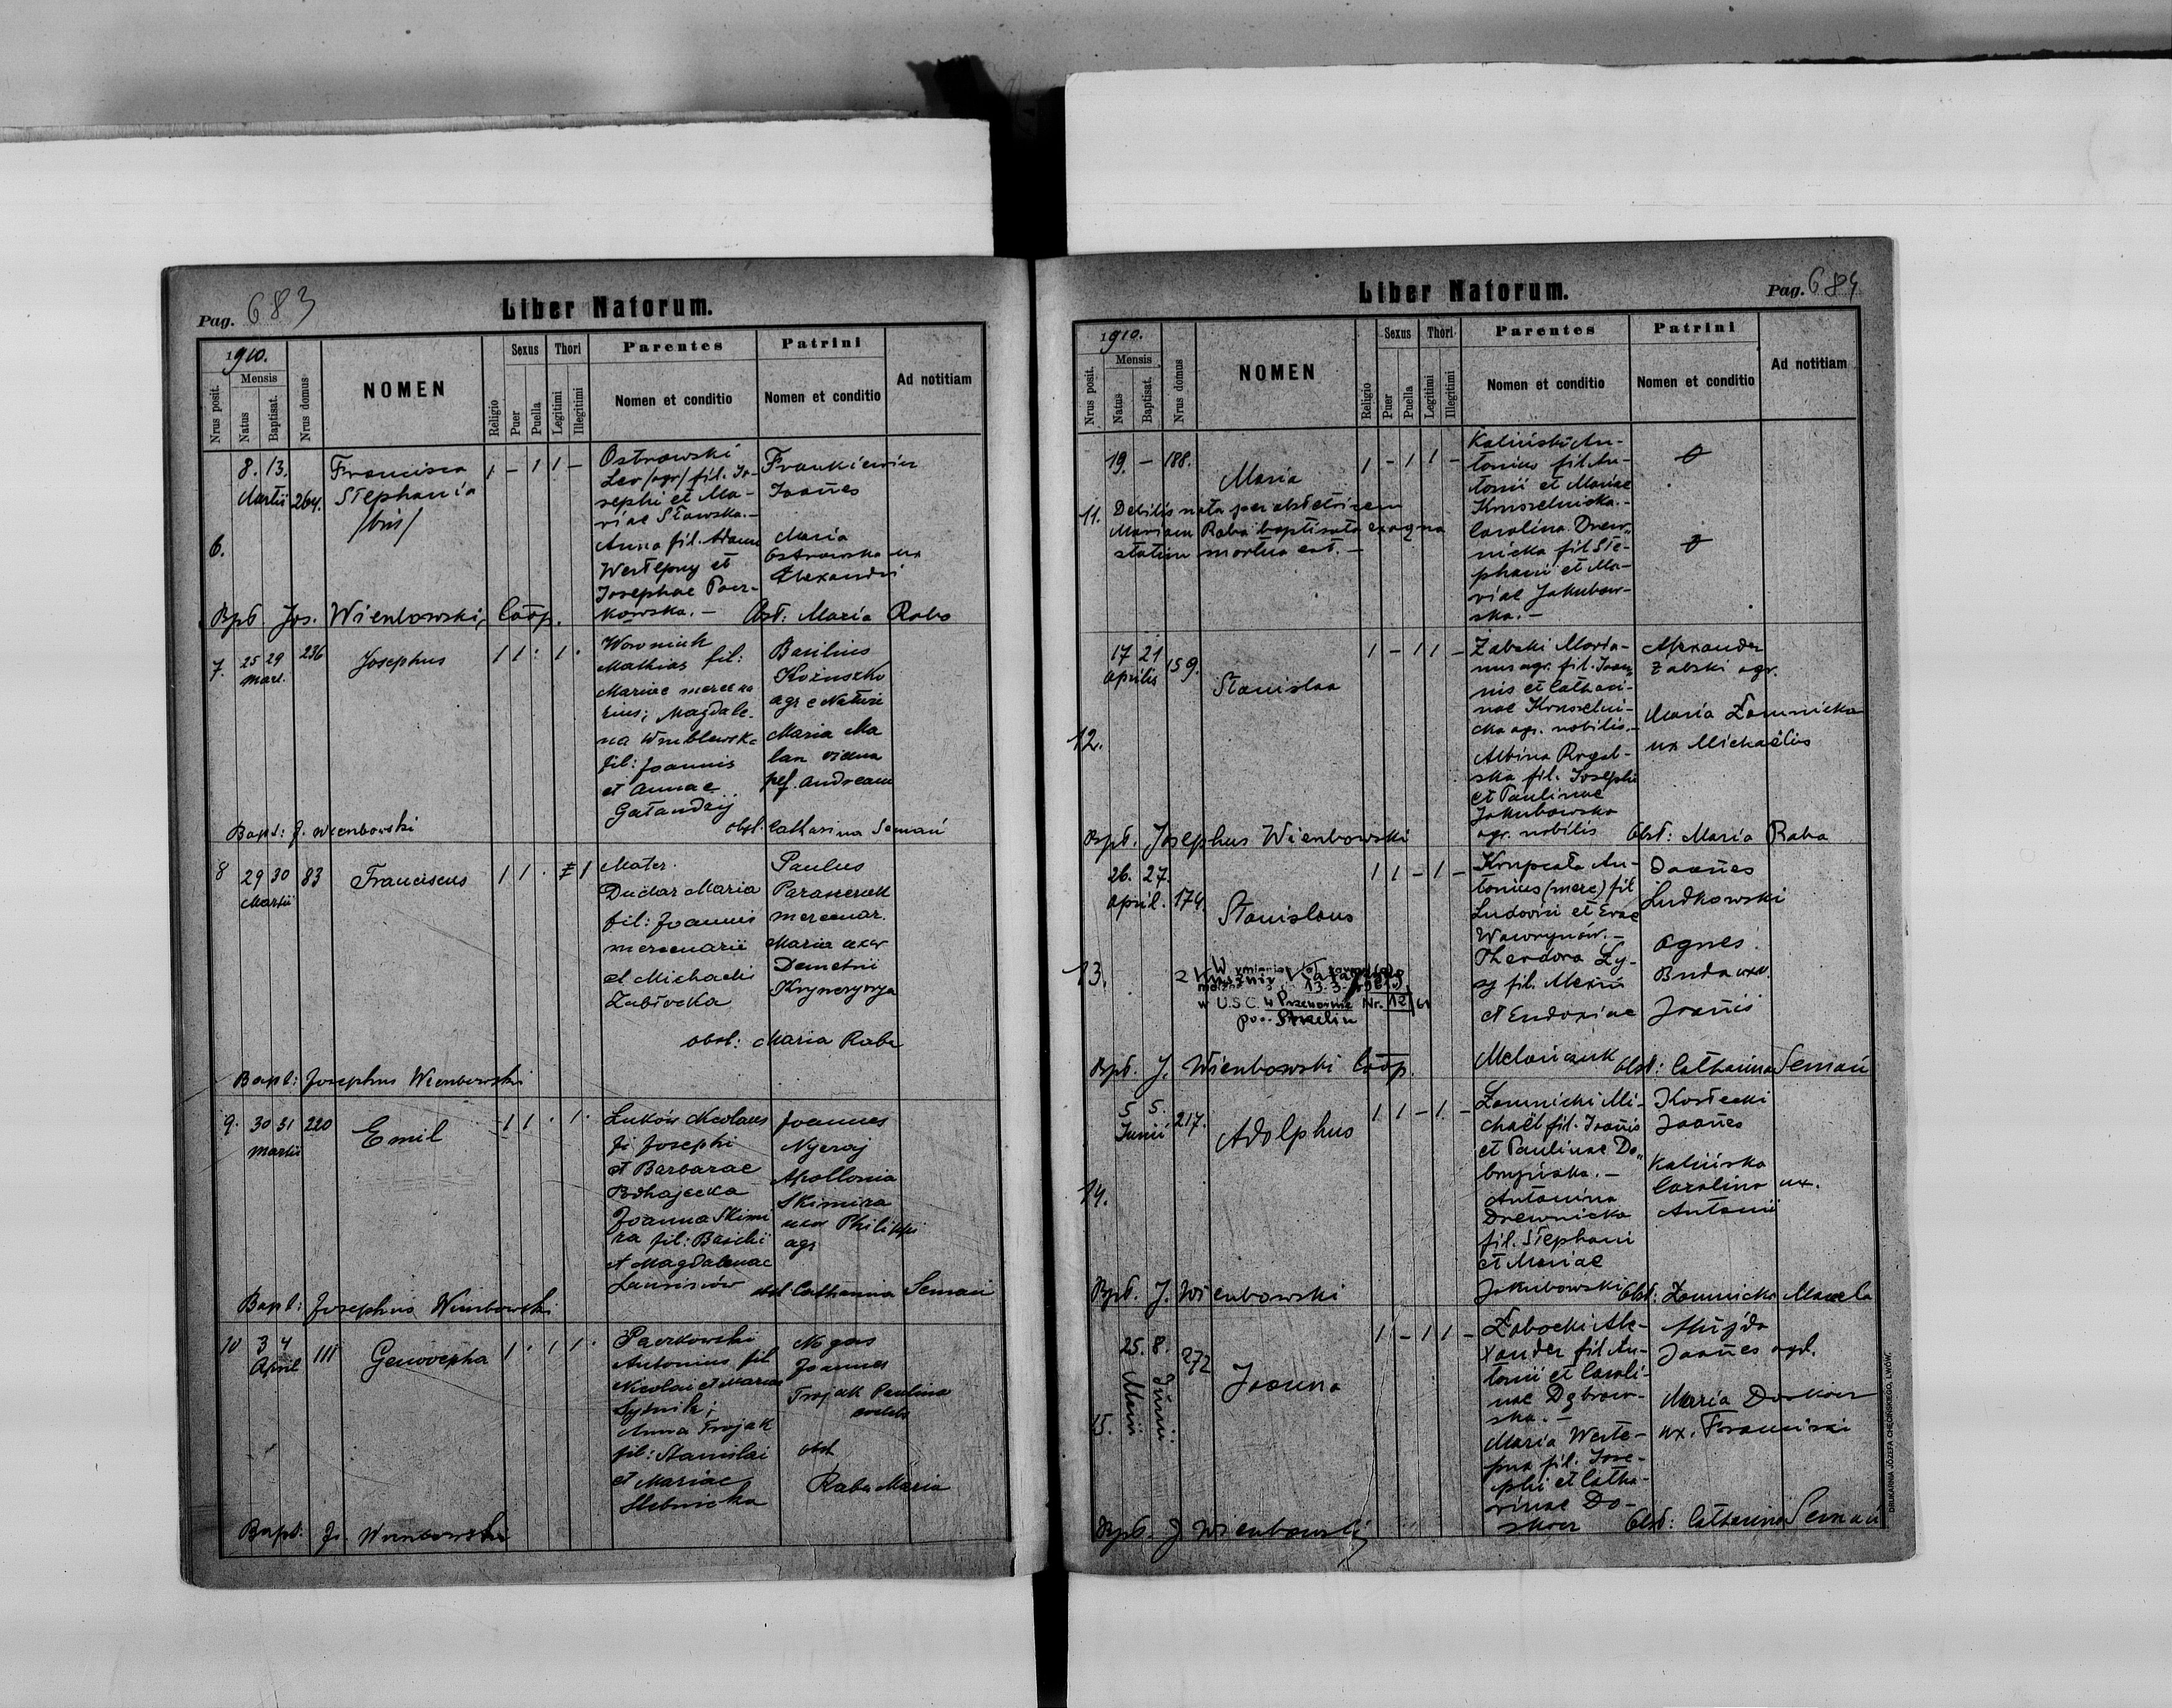 Pag. 683
Liber Natorum.
1910.
Nrus posit.
Mensis
Natus
Baptisat.
Nrus domus
NOMEN
Religio
Sexus
Puer
Puella
Thori
Legitimi
Illegitimi
Parentes
Nomen et conditio
Patrini
Nomen et conditio
Ad notitiam
6.
8. 13.
Martii
264.
Francisca
Stephania
/bin/
1 - 1 1 -
Ostrowski
Leo /agr/ fil. Jo-
sephi et Ma-
riae Stawska.-
Anna fil. Adami
Wertepny et
Josephae Pacz-
kowska.-
Frankiewicz
Joañes
Maria
Ostrowska ux
Alexandri
Bpt. Jos. Wienbowski, Coop.
Obst: Maria Raba
7.
25 29
Mart.
236
Josephus
1 1 · 1 ·
Woroniuk
Mathias fil:
Mariae mercena
rius; Magdale-
na Wrublewska
fil: Joannis
et Annae
Gałandzij
Basilius
Kożuszko
agr e
Maria Ma
lan vidua
Andream
Bapt: J. Wienbowski
obst. Catharina Semań
8
29 30
Martii
83
Franciscus
1 1 · 1
Mater
Duchar Maria
fil: Joannis
mercenarii
et Michaeli
Zabłocka
Paulus
Paraszczak
mercenar.
Maria uxor
Demetrii
obst: Maria Raba
Bapt: Josephus Wienbowski
9.
30 31
Martii
220
Emil
1 1 · 1 ·
Luków Nicolaus
fi Josephi
et Barbarae
Podhajecka
Joanna Skimi
ra fil: Basilii
et Magdalenae
Joannes
Nyeraj
Apollonia
Skimira
uxor Philippi
agr
Bapt: Josephus Wienbowski
obst Catharina Semań
10
3 4
April
111
Genovepha
1 · 1 1 ·
Paczkowski
Antonius fil
Nicolai et Mariae
Anna Trojak
fil: Stanislai
et Mariae
Słobnicka
Nogas
Joannes
Trojak Paulina
obst
Raba Maria
Bapt. Js. Wienbowski
Liber Natorum.
Pag. 684
1910.
Nrus posit.
Mensis
Natus
Baptisat.
Nrus domus
NOMEN
Religio
Sexus
Puer
Puella
Thori
Legitimi
Illegitimi
Parentes
Nomen et conditio
Patrini
Nomen et conditio
Ad notitiam
11.
19. - 188.
Maria
1 - 1 1 -
Debilis nata per obstetricem
Mariam Raba baptisata
statim mortua est.-
Kaliński An-
tonius fil An-
tonii et Mariae
Kraselnicka.-
Carolina Drew-
nicka fil Ste-
phani et Ma-
riae Jakubow-
ska.-
12.
17 21
Aprilis
159.
Stanislaa
1 - 1 1 -
Żabski Maria-
nus agr. fil. Joan-
nis et Cathari-
nae Kraselni-
cka agr. nobilis.-
Albina Rogal-
ska fil. Josephi
et Paulinae
Jakubowska
agr. nobilis
Alexander
Żabski agr.
Maria Łomnicka
ux Michaëlis
Bpt. Josephus Wienbowski
Obst: Maria Raba
13.
26. 27.
April.
174.
Stanislaus
1 1 - 1 -
13.3.
w U.S.C. w Przewornie Nr. 12/61
pow. Strzelin
Krupcała An-
tonius (merc) fil
Ludovici et Evae
Wawrynów.-
Theodora Ły-
sy fil. Alexii
et Eudoxiae
Melańczuk
Joañes
Ludkowski
Agnes
Buda uxor
Joañis
Bpt. J. Wienbowski Coop.
Obst: Catharina Semań
14.
5 5.
Junii
217.
Adolphus
1 1 - 1 -
Łomnicki Mi-
chaël fil. Joañis
et Paulinae Do-
bryńska.-
Antonina
Drewnicka
fil. Stephani
et Mariae
Jakubowski
Kostecki
Joañes
Kalińska
Carolina ux.
Antonii
Bpt. J. Wienbowski
Obst: Łomnicka Marcela
15.
25. 8.
Maii
Junii.
272
Joanna
1 - 1 1 -
Zabocki Ale-
xander fil An-
tonii et Caroli-
nae Dąbrow-
ska.-
Maria Werte-
pna fil. Jose-
phi et Catha-
rinae Do-
skocz
Joañes agr.
Maria Doskocz
ux. Francisci
Bpt. J. Wienbowski
Obst: Catharina Semań
DRUKARNIA JÓZEFA CHĘCIŃSKIEGO, LWÓW.